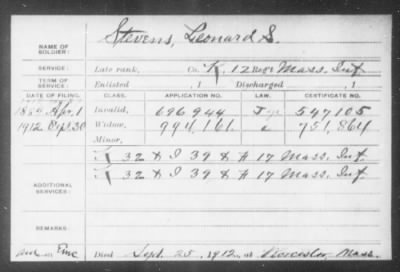 Stevens, Leonard S.
NAME OF SOLDIER:
SERVICE: Late rank, Co. K, 12 Reg't Mass. Inf.
TERM OF SERVICE: Enlisted , 1 Discharged , 1
DATE OF FILING. CLASS. APPLICATION NO. LAW. CERTIFICATE NO.
Apr. 1 Invalid, 696944 547105
1912 Sept. 30 Widow, 994,161 751,864
Minor,
ADDITIONAL SERVICES:
K 32 & I 39 & H 17 Mass. Inf.
K 32 & I 39 & H 17 Mass. Inf.
Died Sept. 25, 1912, at Worcester Mass.